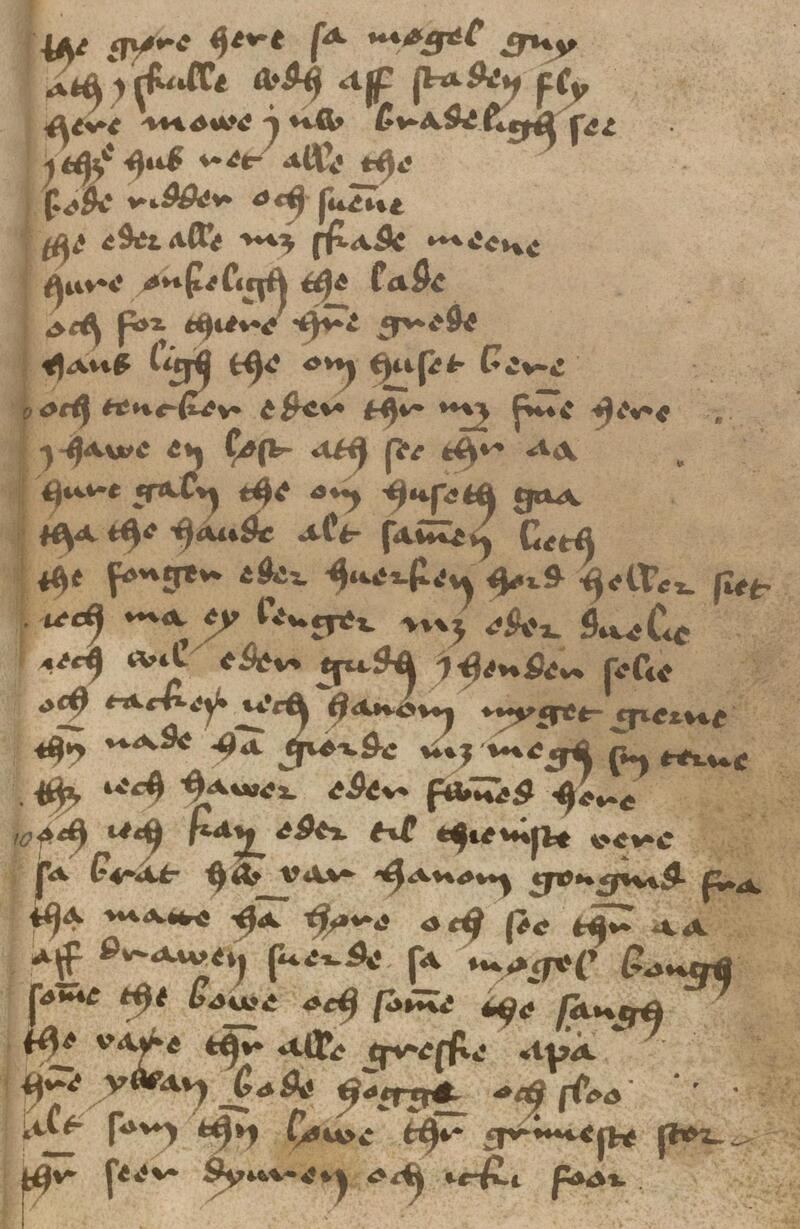 the gyøre here sa møgel gny
ath j skulle wdh aff staden fly
here mowe j nw bradeligh see
j thz hus ret alle the
bode ridder och suēne
the eder alle mz skade meene
hure ønkeligh the lade
och for thiere hr̄e grede
hans ligh the om huset bere
och tencker eder thr̄ mz fīne here
j hawe en løst ath see thr̄ aa
hure galn the om huseth gaa
tha the haude alt samēn lieth
the fongen eder huerken hord heller siet
iech ma ey lenger mz eder duelie
iech wil eder gudh j henden selie
och tacker iech hanom myget gierne
thn̄ nade hā giorde mz megh sin terne
thz iech hawer eder fwn̄ed here
och iech kan eder til thieniste vere
sa brat hw̄ var hanom gongind fra
tha matte hā høre och see thr̄ aa
aff drawen suerde sa møgel bongh
som̄e the bowe och som̄e the sangh
the vare thr̄ alle greske apa
hr̄e ywan bode hogge och sloo
alt som thn̄ løwe thr̄ grimeste stor
thr̄ seer dyuren och icki foor